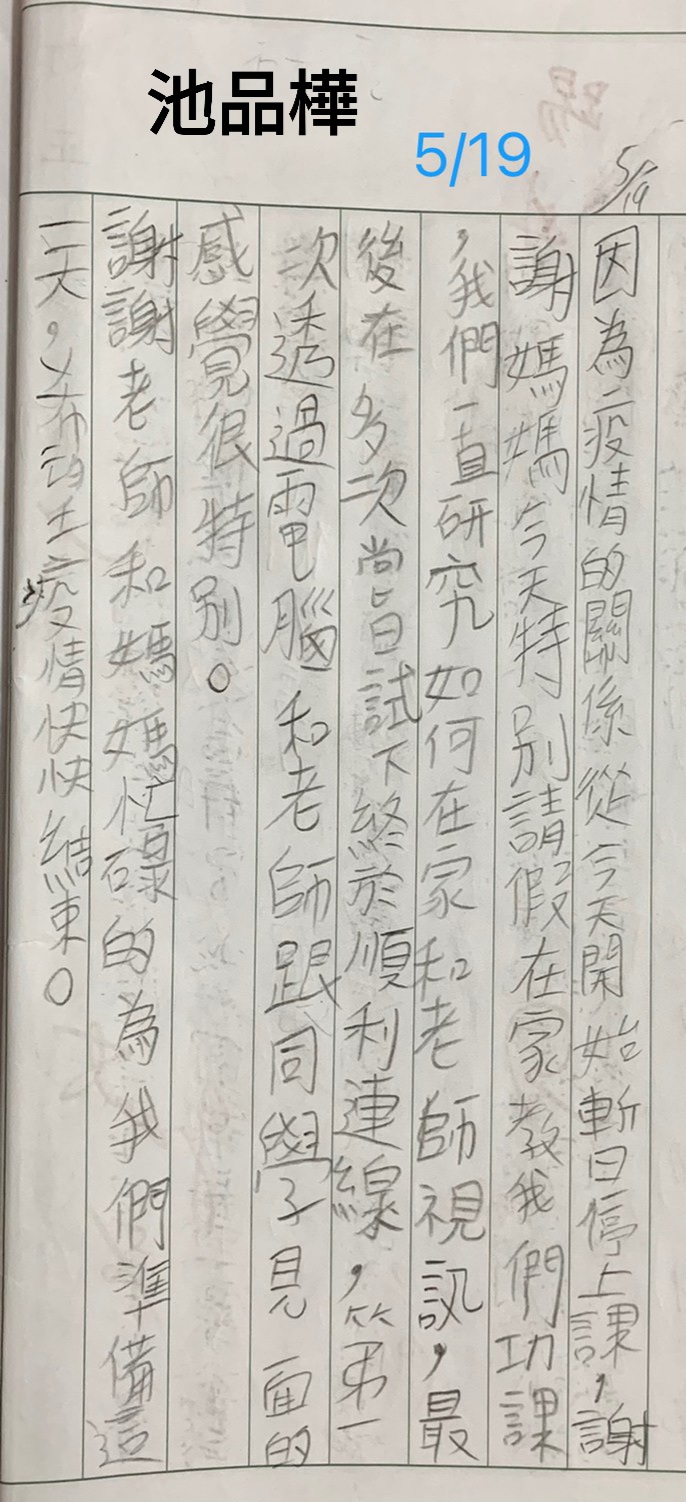 池品樺
5/19
5/19
因為疫情的關係從今天開始暫停上課，謝
謝媽媽今天特別請假在家教我們功課
，我們一直研究如何在家和老師視訊，最
後在多次嘗試下終於順利連線，第一
次透過電腦和老師跟同學見面的
感覺很特別。
謝謝老師和媽媽忙碌的為我們準備這
三天，希望疫情快快結束。